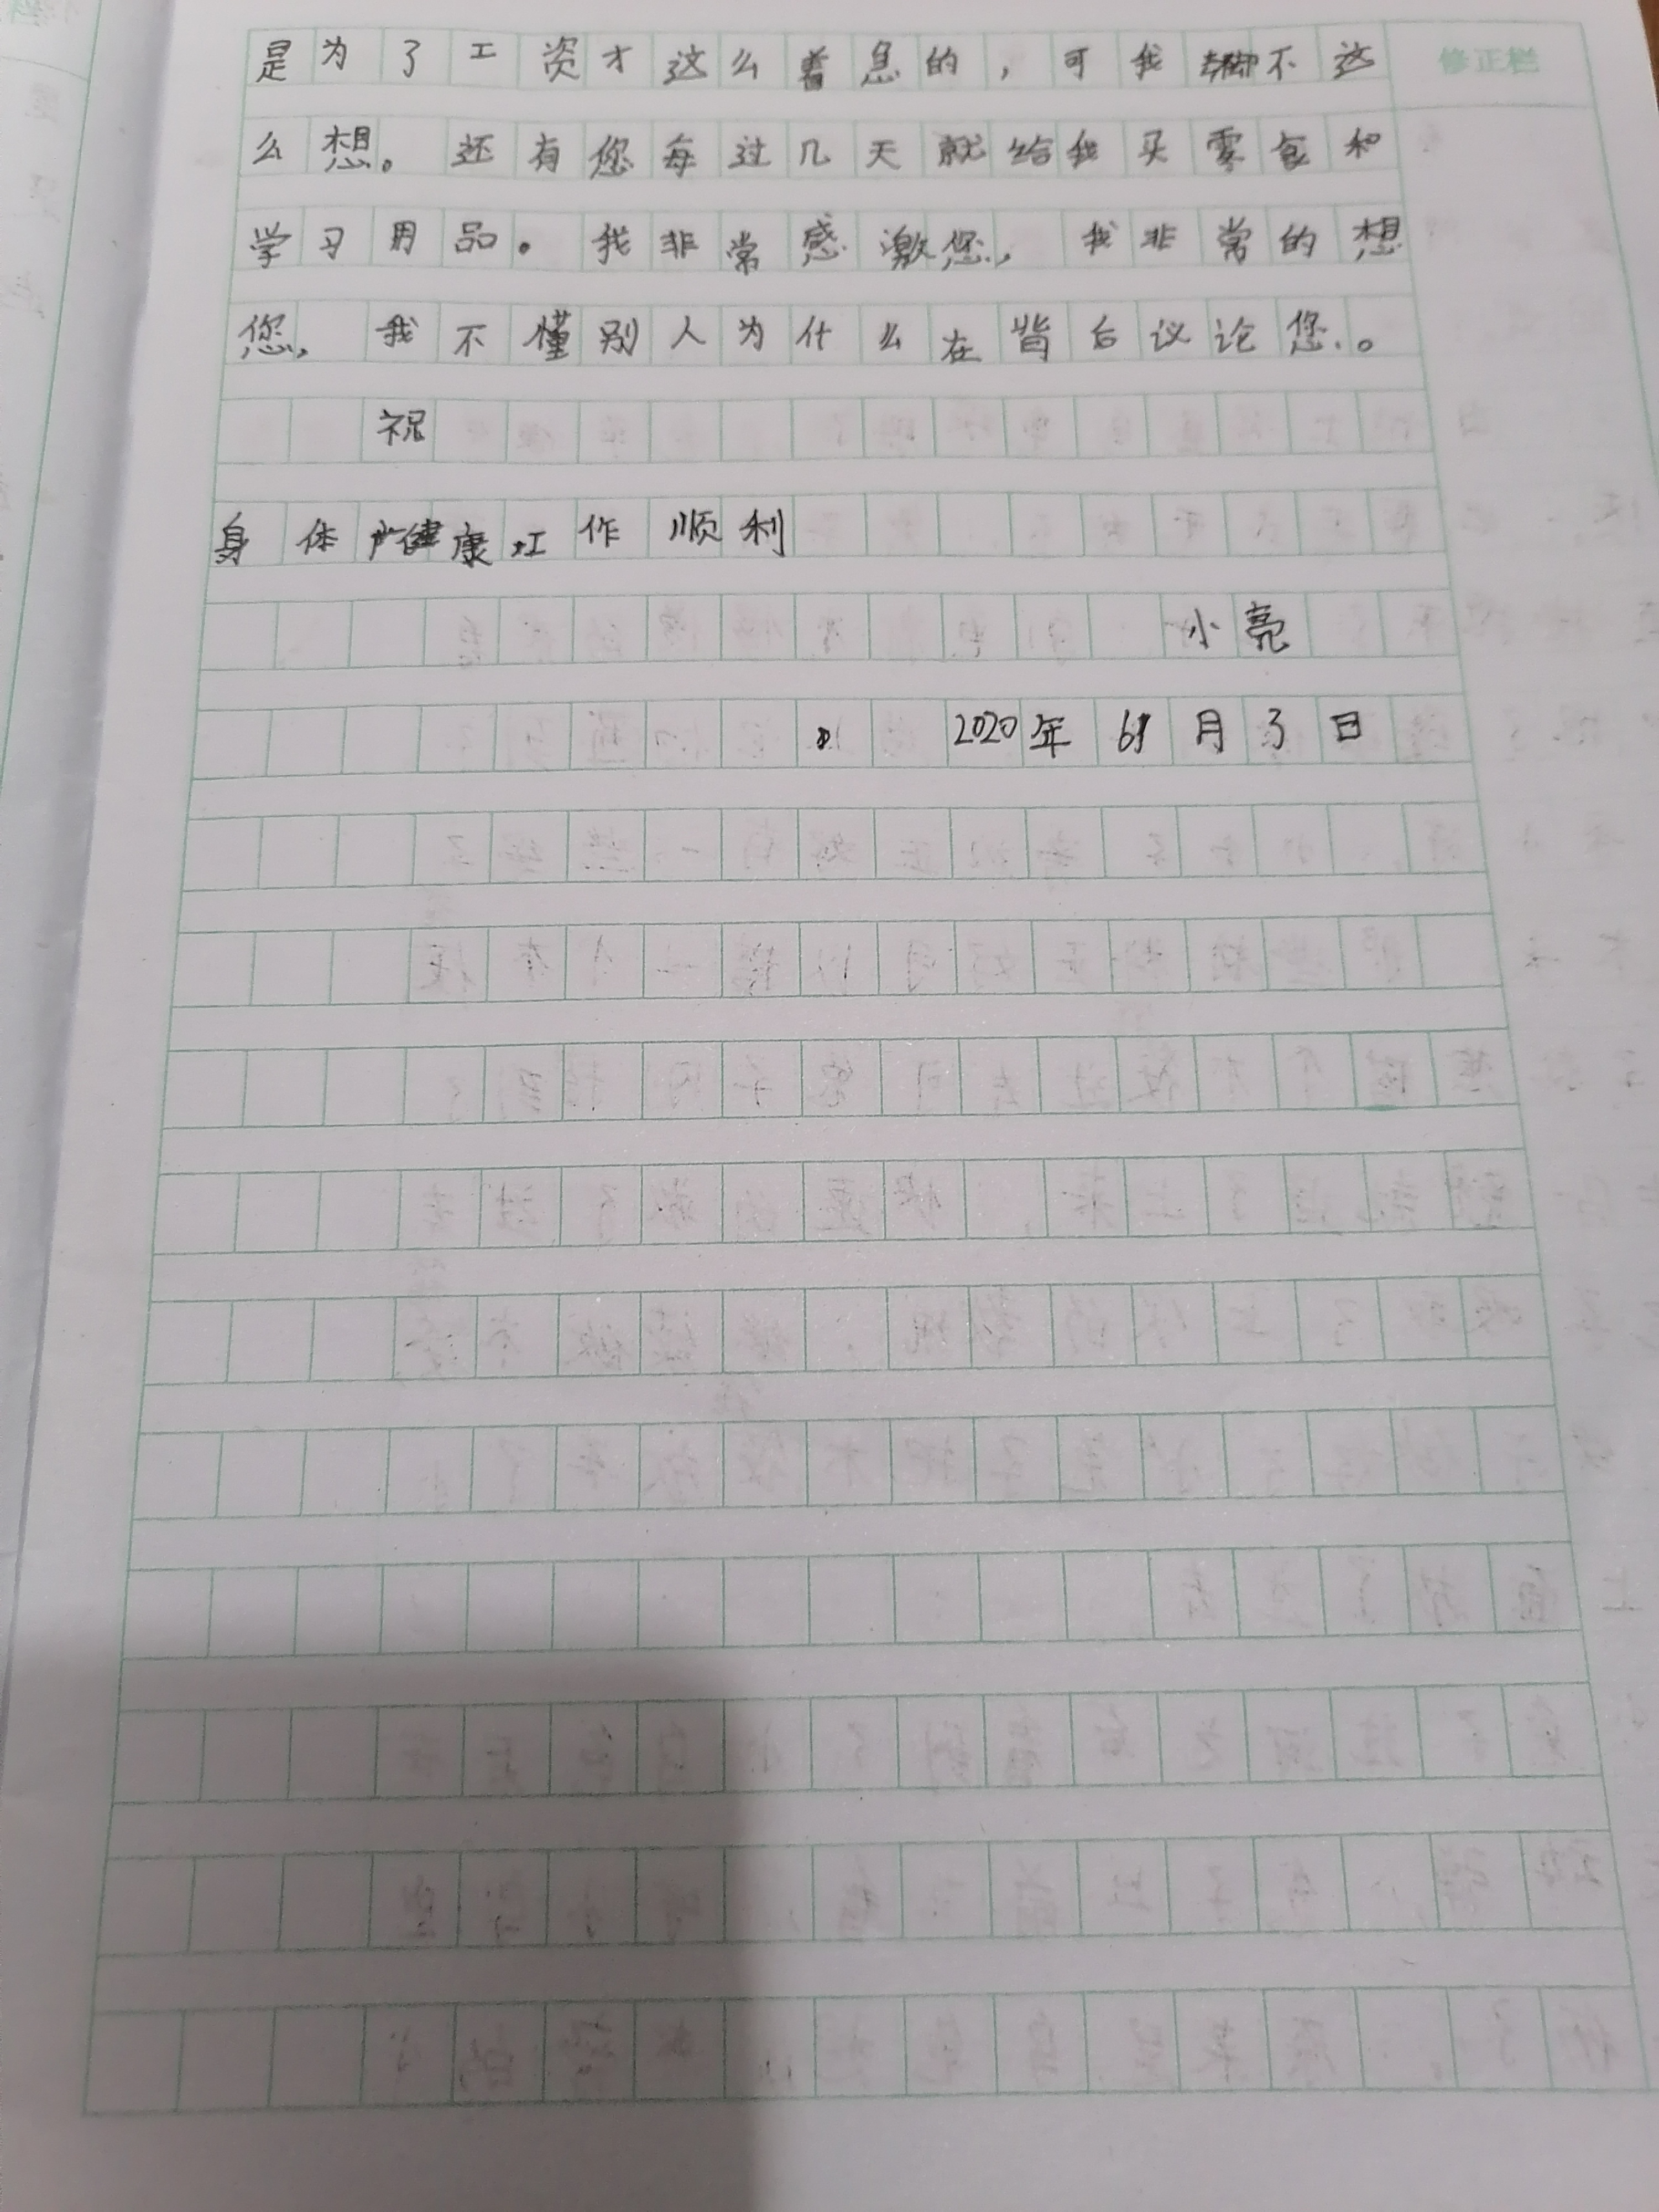 是为了工资才这么着急的，可我却不这
修正栏
么想。还有您每过几天就给我买零食和
学习用品。我非常感激您，我非常的想
您，我不懂别人为什么在背后议论您。
祝
身体健康工作顺利
小亮
2020年 月3日